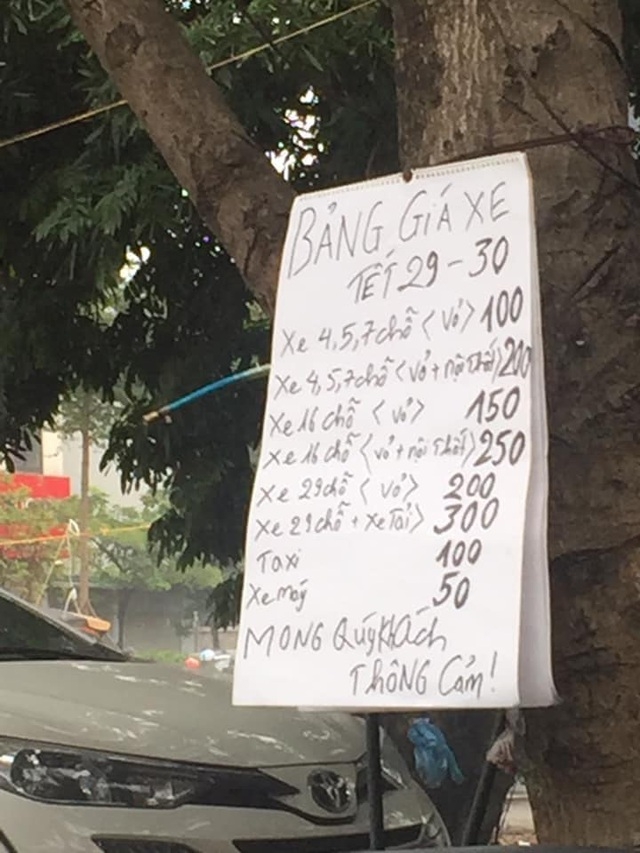 BẢNG GIÁ XE
TẾT 29 - 30
Xe 4,5,7 chỗ <vỏ> 100
Xe 4,5,7 chỗ <vỏ + nội thất> 200
Xe 16 chỗ <vỏ> 150
Xe 16 chỗ <vỏ + nội thất> 250
Xe 29 chỗ <vỏ> 200
Xe 29 chỗ + xe Tải> 300
Taxi 100
Xe máy 50
MONG QUÝ KHÁCH
THÔNG CẢM!